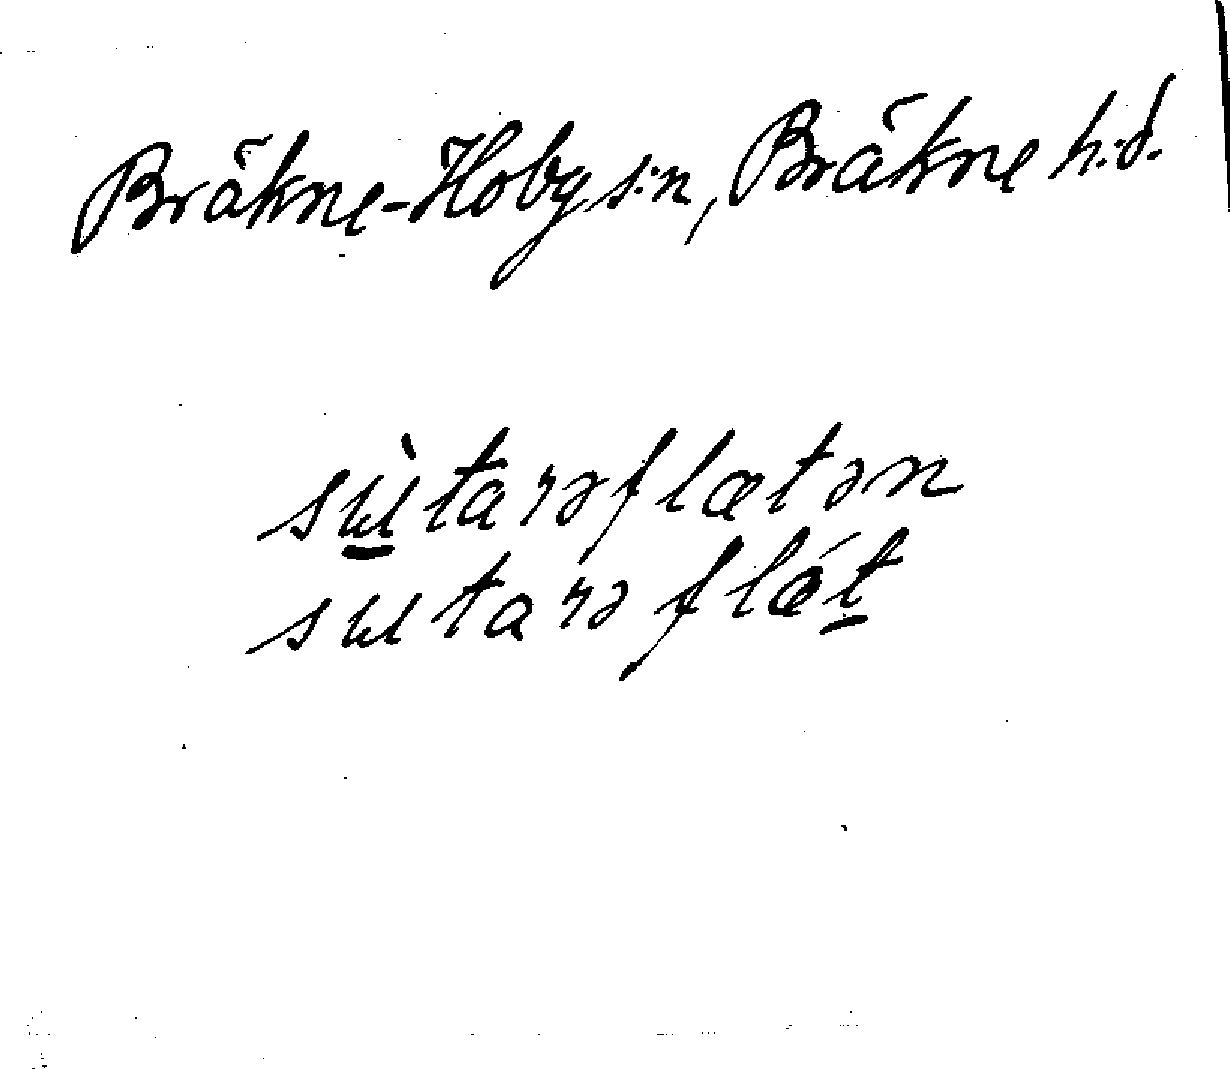 Bräkne-Hoby s:n, Bräkne h:d.
sɯ̀tarəflætən
sɯtarəflǽt